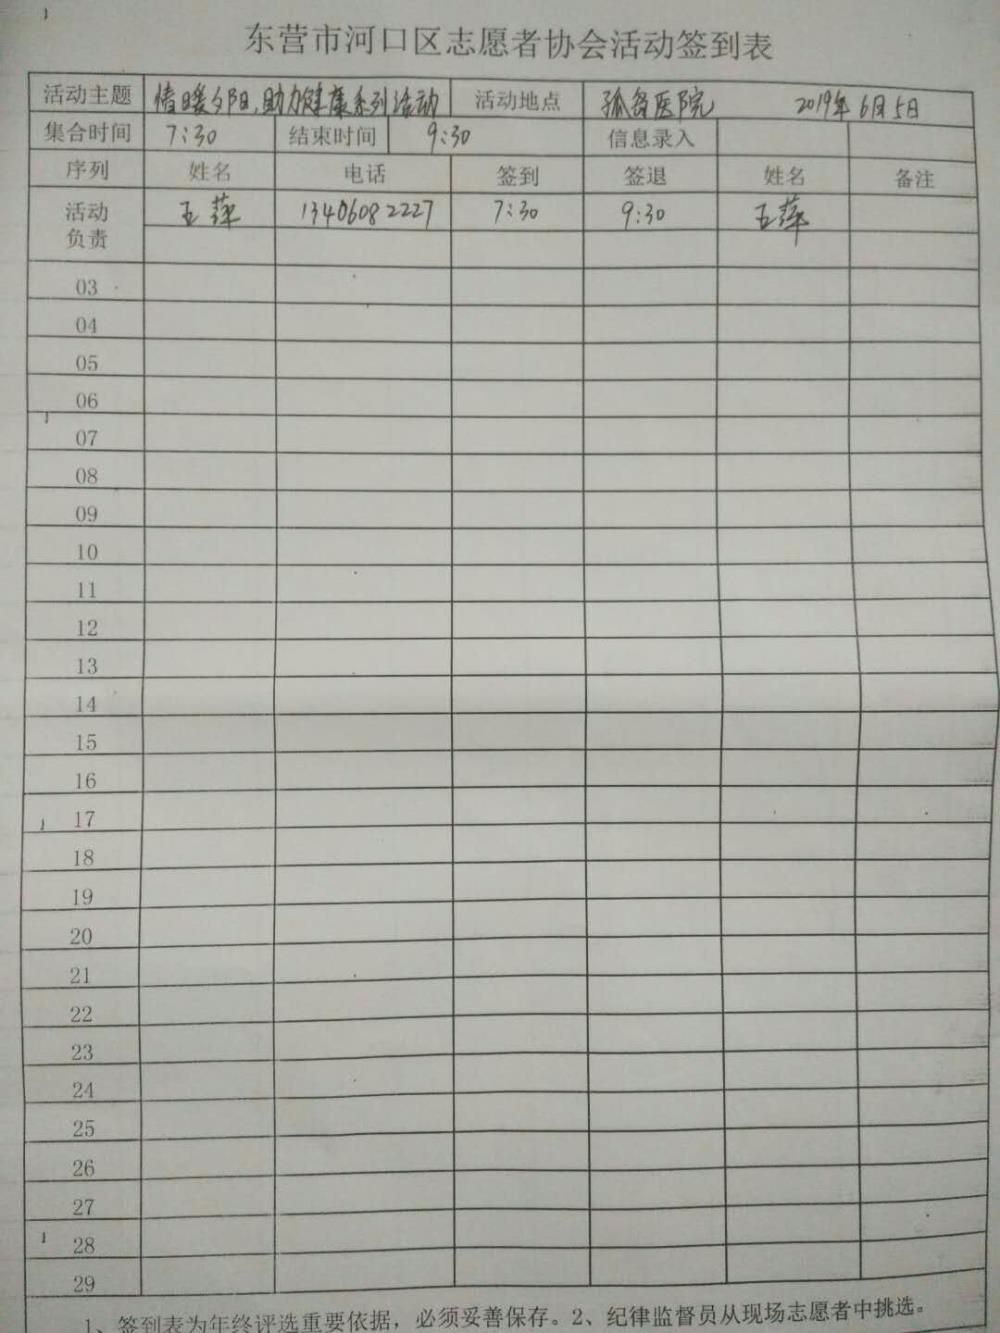 东营市河口区志愿者协会活动签到表
活动主题 情暖夕阳,助力健康系列活动 活动地点 孤岛医院 2019年6月5日
集合时间 7:30 结束时间 9:30 信息录入
序列 姓名 电话 签到 签退 姓名 备注
活动负责 王萍 13406082227 7:30 9:30 王萍
03
04
05
06
07
08
09
10
11
12
13
14
15
16
17
18
19
20
21
22
23
24
25
26
27
28
29
1、签到表为年终评选重要依据，必须妥善保存。2、纪律监督员从现场志愿者中挑选。